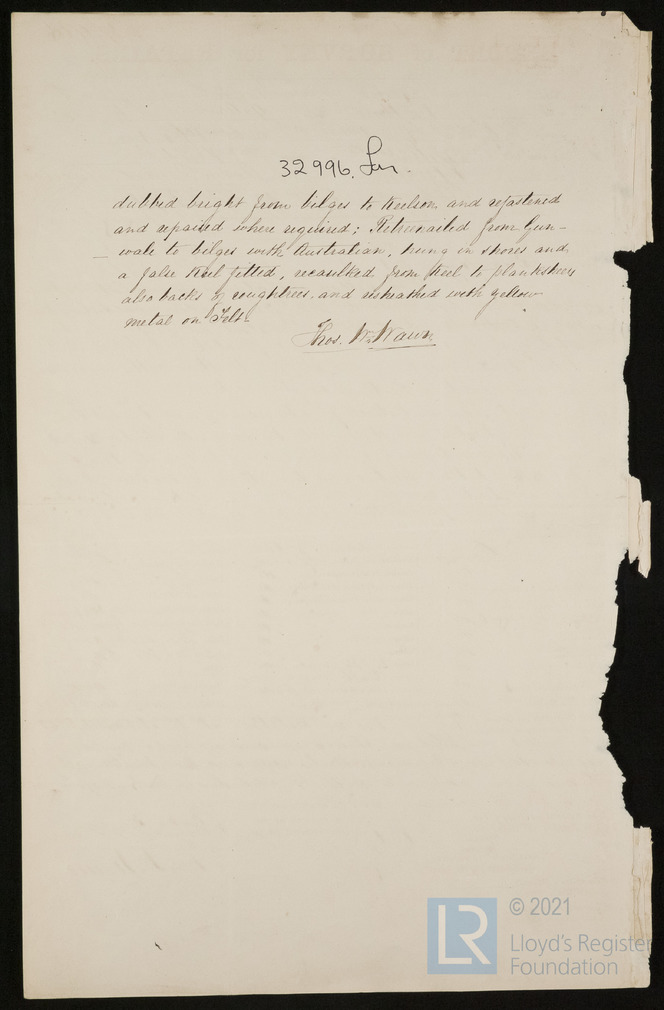 32996. Lon.
dubbed bright from bilges to Keelson and refastened
and repaired where required; Retreenailed from Gun-
wale to bilges with Australian, hung in shores and
a false Keel fitted, recaulked from keel to planksheer
also backs of roughtrees. and resheathed with yellow
metal on Felt.
Thos. W. Wawn
© 2021
LR
Lloyd's Register
Foundation